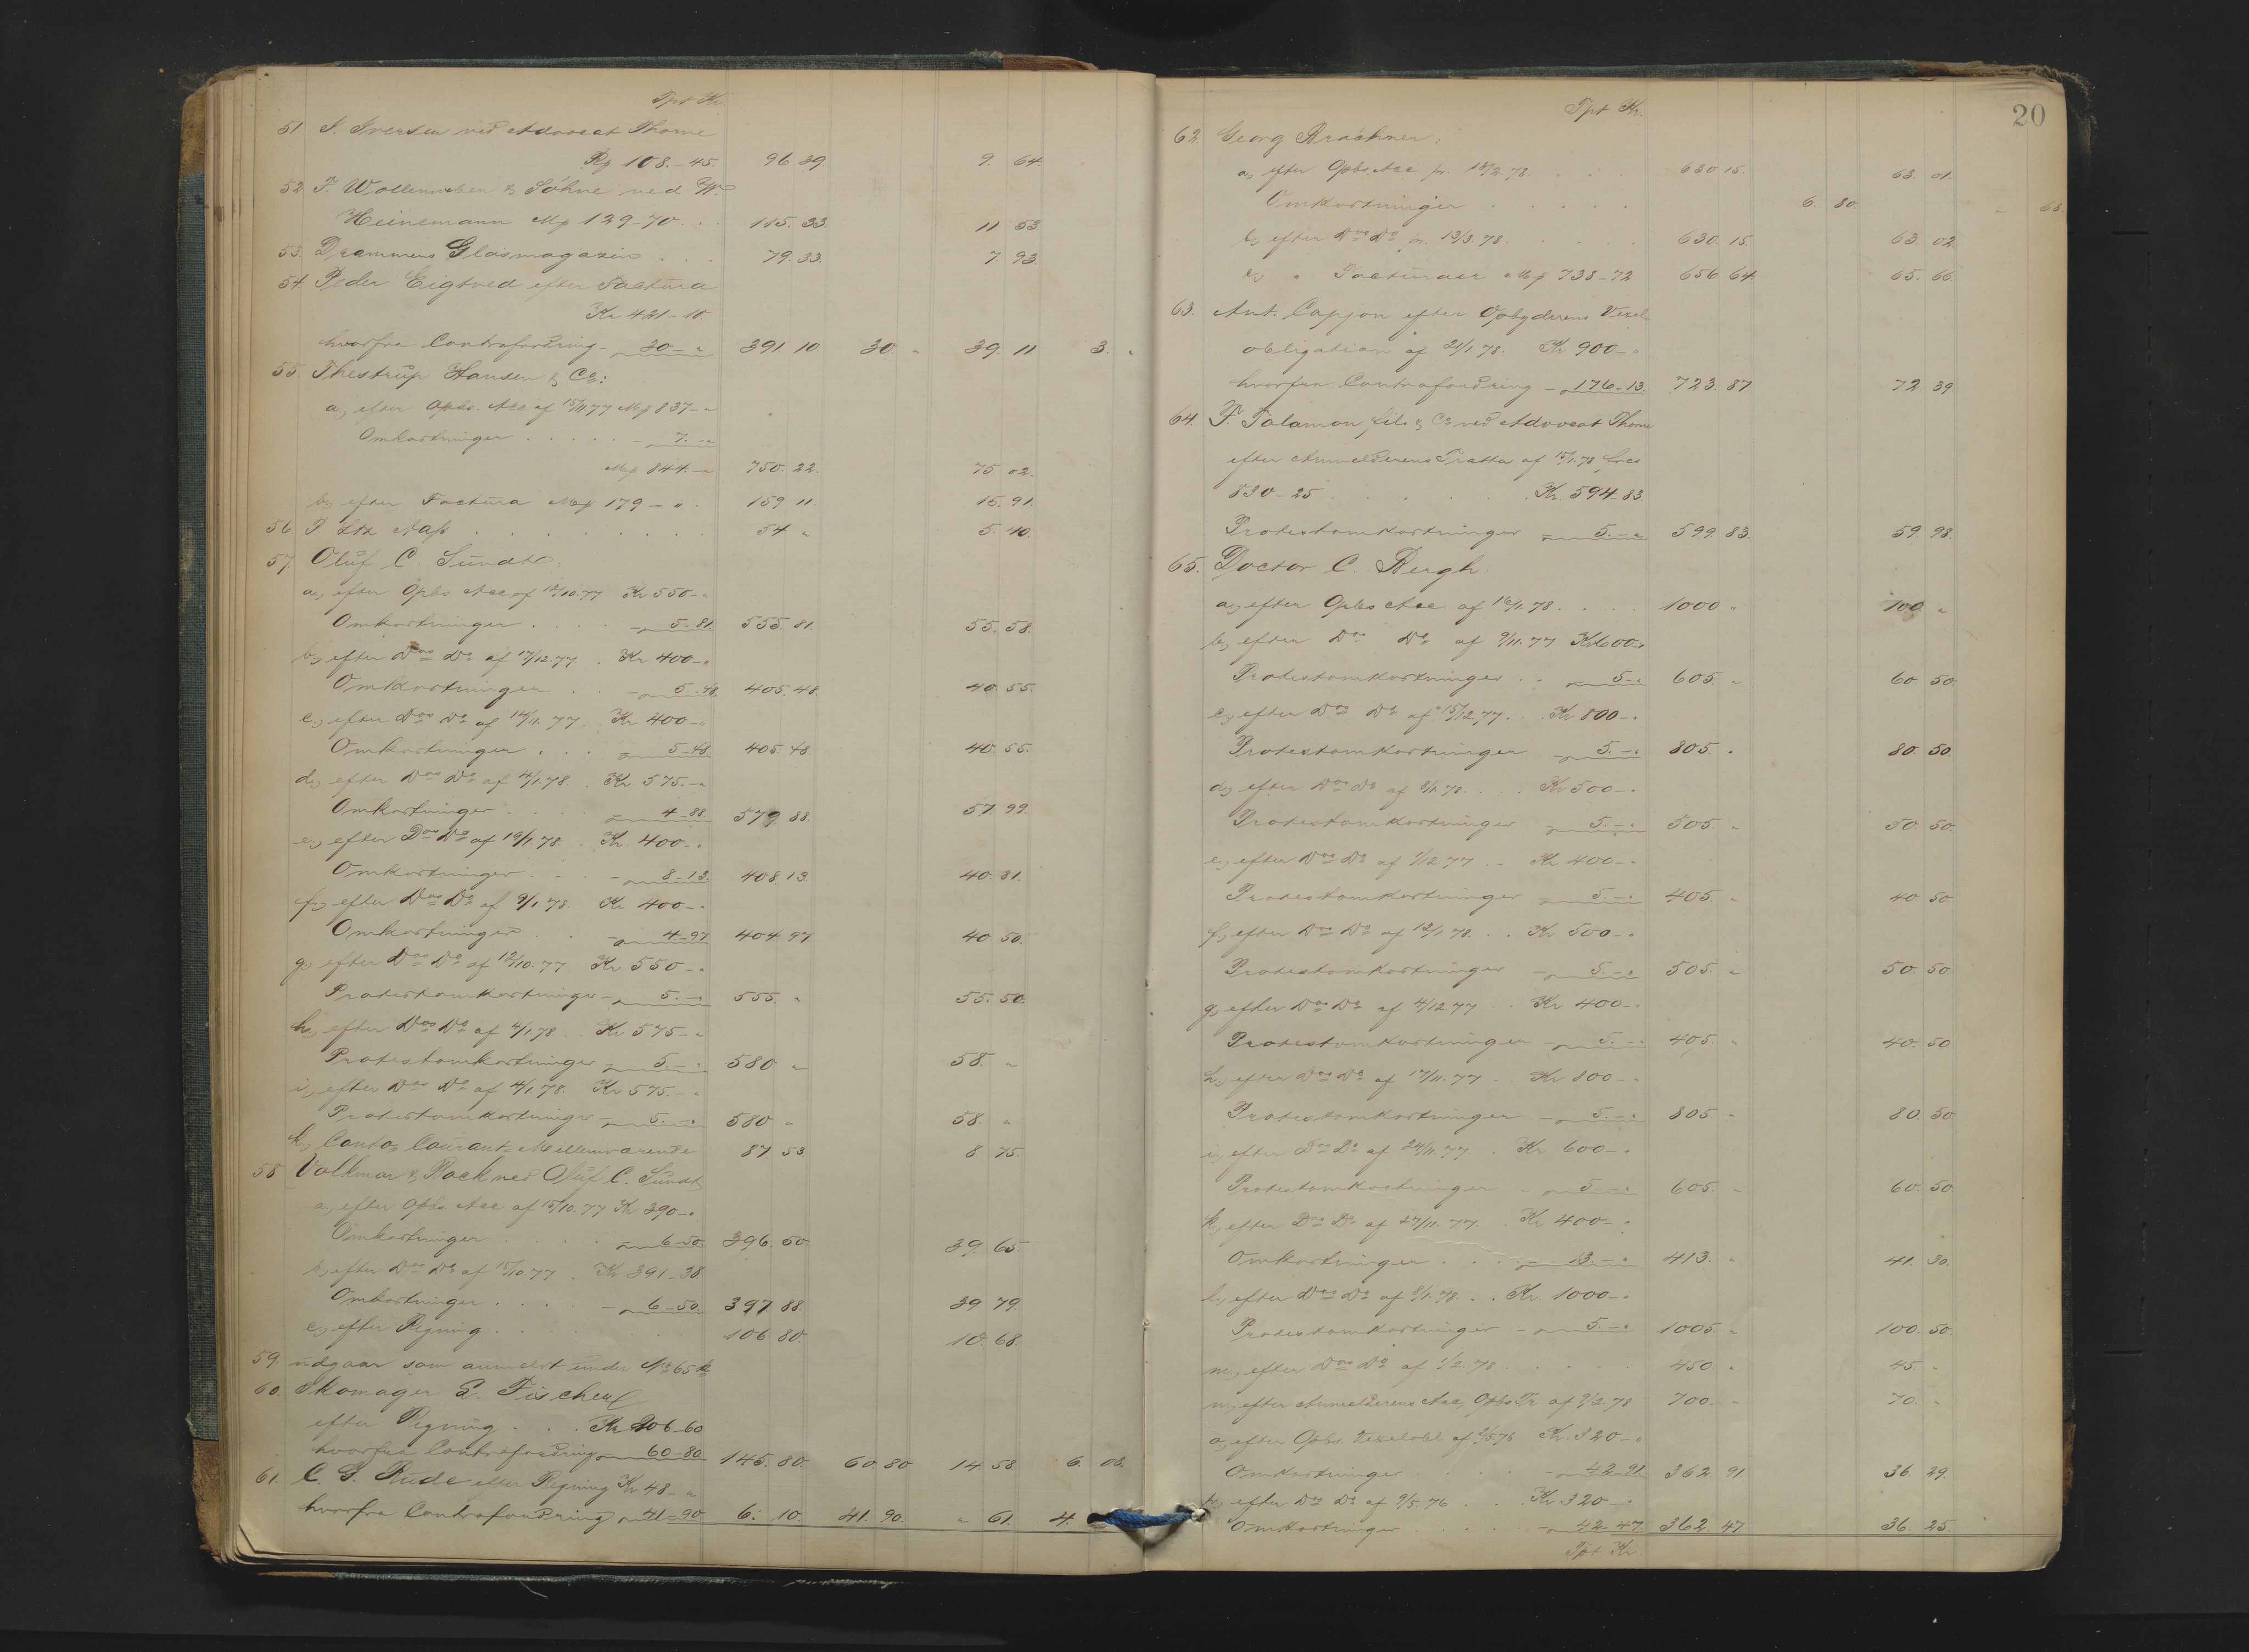 Tpt Kr
51 S. Iversen ved Advocat Thome
Rg 108.-45. 96 39 9. 64
52 F. Wollenweber & Söhne ved
Heinemann Mg 129-70 . . 115. 33 11 53
53. Drammens Glasmagasin . . . 79. 33. 7. 93
54 Peder Eigtved efter Factura
Kr 421-10.
hvorfra Contrafordring - 30 - " 391. 10. 30. " 39. 11 3. "
55 Thestrup Hansen & Co:
a, efter Opbs. Acc af 15/11 77 Mg 837 - "
Omkostninger . . . . . - 7. - "
Mg 844. - " 750. 22. 75. 02.
b, efter Factura Mg 179 - " . 159 11. 15. 91.
56 P Aass . . . . . . . . 54 " 5. 40.
57 Oluf C. Sundt.
a, efter Opbs Acc af 12/10.77 Kr 550 - "
Omkostninger . . . . - 5-81. 555. 81. 55. 58.
b, efter Do Do af 17/12.77. . Kr 400 - "
Omkostninger . . - 5.-48 405. 48. 40. 55.
c, efter Do Do af 14/11.77. . Kr 400 - "
Omkostninger . . . 5-48 405. 48 40. 55.
d, efter Do Do af 4/1.78. . Kr 575. - "
Omkostninger . . . . 4-88. 579 88. 57. 99.
e, efter Do Do af 19/1 78 . Kr. 400 - "
Omkostninger . . . - 8-13. 408. 13 40. 81.
f, efter Do Do af 9/1 78. Kr 400 - "
Omkostninger . . - 4-97 404. 97 40. 50.
g, efter Do Do af 12/10.77 Kr 550 - "
Protestomkostninger - 5. - " 555. " 55. 50.
h, efter Do Do af 4/1.78 . . Kr 575 - "
Protestomkostninger - 5. - " 580 " 58. "
i, efter Do Do af 4/1.78. Kr 575. - "
Protestomkostninger - 5. - " 580 " 58. "
k, Conto Courant Mellemværende 87 53 8 75.
58 Volkmar & Rack ved Oluf C. Sundt
a, efter Opbs. Acc af 15/10.77 Kr 390 - "
Omkostninger . . . . 6-50 396. 50 39. 65.
b, efter Do Do af 15/10 77 . Kr 391-38
Omkostninger . . . . - 6-50. 397 88. 39 79.
c, efter Regning . . . . 106 80. 10. 68.
59. udgaar som anmeldt under No 65 k
60 Skomager Fischer
efter Regning . . . Kr 206-60
hvorfra Contrafordring - 60-80 145. 80. 60. 80 14. 58. 6. 08.
61. C G. Rude efter Regning Kr 48 - "
hvorfra Contrafordring - 41-90 6. 10. 41. 90. " 61. 4.
20
Tpt Kr.
62 Georg Braschner:
a, efter Opbs. Acc pr. 13/2.78. . . . 630 15. 63. 01.
Omkostninger . . . . . 6 80 " 68
b, efter Do Do pr. 13/3.78. . . . . 630. 15. 63 02
c, " Facturaer Mg 738-72 656 64. 65. 66.
63. Ant. Capjon efter Opbyderens Vexel
obligation af 21/1.78. Kr 900 - "
hvorfra Contrafordring - 176-13. 723. 87 72 39
64. F. Talamon fils & Co ved Advocat Thome
efter Anmelderens Tratta af 15/1.78 frcs
830-25 . . . . . . Kr. 594-83
Protestomkostninger 5. - " 599. 83. 59. 98.
65. Doctor C. Bergh.
a, efter Opbs Acc af 16/1.78. . . . 1000 " 100. "
b, efter Do Do af 9/11.77 Kr 600 - "
Protestomkostninger . . 5 - " 605. " 60 50.
c, efter Do Do af 15/12.77. . . Kr 800 - "
Protestomkostninger - 5. - " 805. " 80. 50
d, efter Do Do af 8/1.78. . . . Kr 500 - "
Protestomkostninger - 5. - " 505. " 50. 50.
e, efter Do Do af 1/12 77 . - Kr 400 - "
Protestomkostninger - 5. - " 405. " 40. 50
f, efter Do Do af 12/1.78. . . Kr 500 - "
Protestomkostninger - 5. - " 505. " 50. 50.
g, efter Do Do af 4/12.77 . . Kr 400 - "
Protestomkostninger - 5. - " 405. " 40. 50
h, efter Do Do af 17/11.77 . Kr 800 - "
Protestomkostninger - 5. - " 805 " 80. 50.
i, efter Do Do af 24/11.77 . Kr 600 - "
Protestomkostninger - 5. - " 605. " 60. 50
k, efter Do Do af 27/11.77. . Kr 400 - "
Omkostninger . . . 13. - " 413. " 41. 30.
l, efter Do Do af 8/1.78. . . Kr. 1000 - "
Protestomkostninger - 5. - " 1005. " 100. 50.
m, efter Do Do af 1/2.78 . . . . . 450 " 45. "
n, efter Anmelderens Acc, Opbs Tr af 9/2.78 700. " 70. "
o, efter Opbs. Vexelobl. af 9/5.76 Kr. 320 - "
Omkostninger . . . . - 42-91 362. 91 36. 29.
p, efter Do Do af 9/5.76 . . . Kr. 320 - "
Omkostninger . . . . . - 42-47. 362. 47 36. 25.
Tpt Kr.